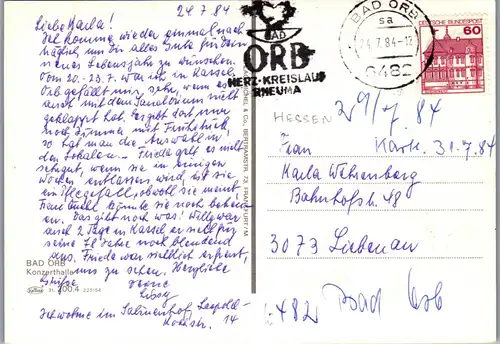 24.7.84
Liebe Karla!
Ich komme wieder einmal nach-
träglich um dir alles Gute für dein
neues Lebensjahr zu wünschen.
Vom 20.-23.7. war ich in Kassel,
Orb gefällt mir sehr, wenn es
auch mit dem Sanatorium nicht
geklappt hat. Es gibt dort nur
noch Zimmer mit Frühstück,
so hat man die Auswahl in
den Lokalen. Friede geht es nicht
gut, wenn sie in einigen
Wochen entlassen wird, ist sie
ein Pflegefall, obwohl sie meint
Frau könnte sie noch behan-
deln. Das gibt noch was! Willi war
auch 2 Tage in Kassel, er sieht für
seine 78 Jahre noch blendend
aus. Friede war sichtlich erfreut,
uns zu sehen. Herzliche
Grüsse Deine
Lissy
Ich wohne im Salinenhof, Leopold-
Kochstr. 14
BAD ORB
Konzerthalle
200.4
MICHEL & CO., BERTRAMSTR. 73, FRANKFURT/M
BAD
ORB
HERZ-KREISLAUF
RHEUMA
BAD ORB 1
sa
24.7.84-12
6482
DEUTSCHE BUNDESPOST
60
HESSEN
29/7 84
Frau Kark. 31.7.84
Karla Wehrenberg
Bahnhofstr. 48
3073 Liebenau
6482 Bad Orb